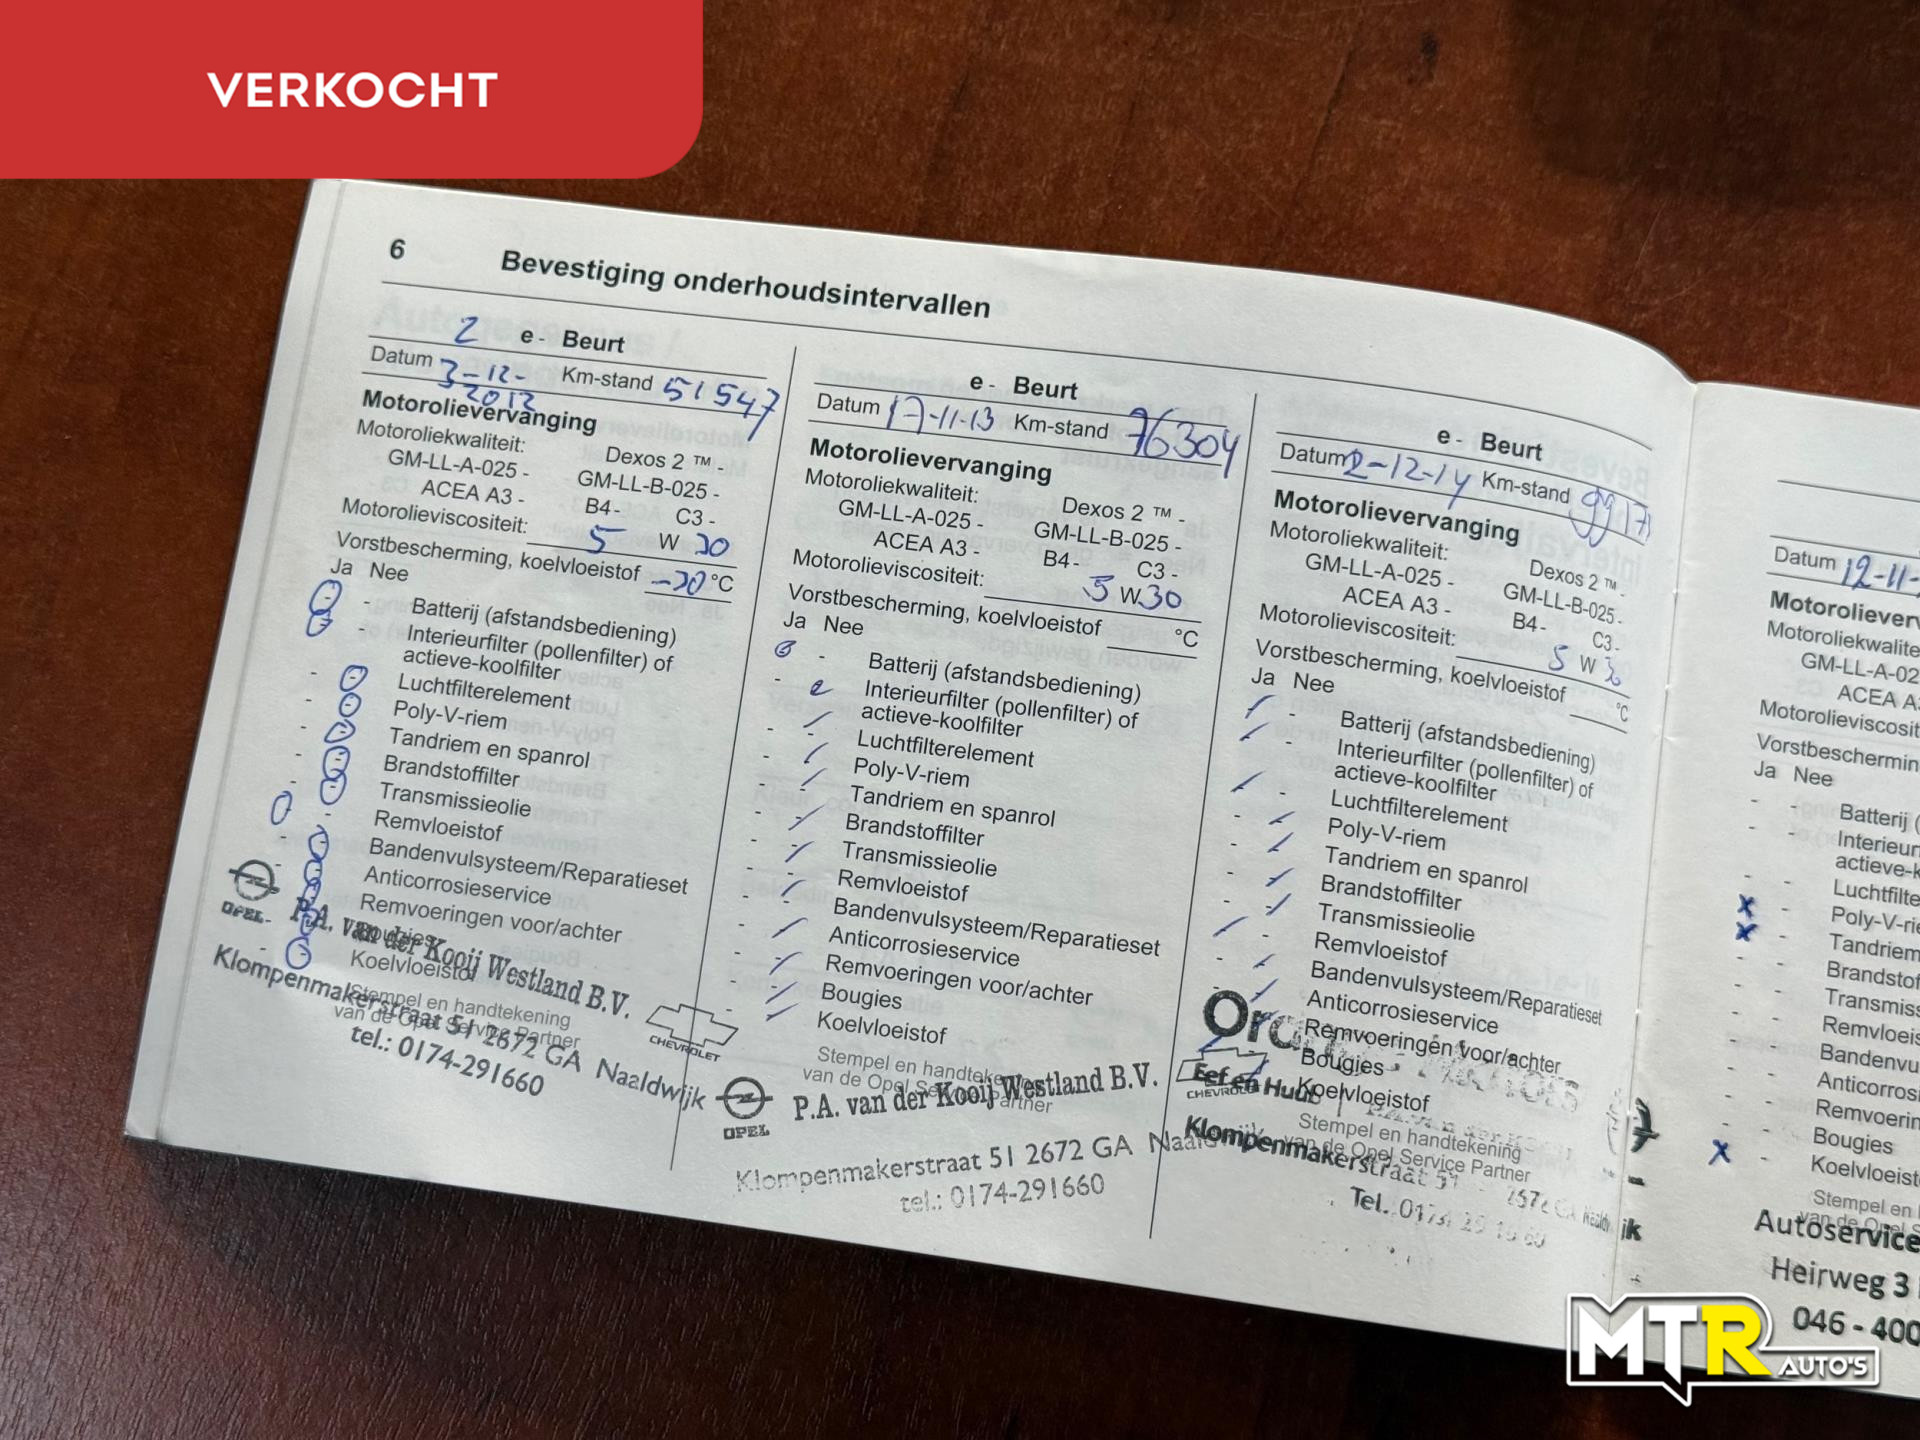 VERKOCHT
6 Bevestiging onderhoudsintervallen
2 e - Beurt
Datum 3-12-2012 Km-stand 51547
Motorolievervanging
Motoroliekwaliteit:
Dexos 2 ™ -
GM-LL-A-025 - GM-LL-B-025 -
ACEA A3 - B4 - C3 -
Motorolieviscositeit: 5 W 30
Vorstbescherming, koelvloeistof -20 °C
Ja Nee
- Batterij (afstandsbediening)
- Interieurfilter (pollenfilter) of
actieve-koolfilter
- Luchtfilterelement
- Poly-V-riem
- Tandriem en spanrol
- Brandstoffilter
- Transmissieolie
- Remvloeistof
- Bandenvulsysteem/Reparatieset
- Anticorrosieservice
- Remvoeringen voor/achter
- Bougies
- Koelvloeistof
Stempel en handtekening
van de Opel Service Partner
OPEL P.A. van der Kooij Westland B.V. CHEVROLET
Klompenmakerstraat 51 2672 GA Naaldwijk
tel.: 0174-291660
e - Beurt
Datum 17-11-13 Km-stand 76304
Motorolievervanging
Motoroliekwaliteit:
Dexos 2 ™ -
GM-LL-A-025 - GM-LL-B-025 -
ACEA A3 - B4 - C3 -
Motorolieviscositeit: 5 W 30
Vorstbescherming, koelvloeistof °C
Ja Nee
- Batterij (afstandsbediening)
- Interieurfilter (pollenfilter) of
actieve-koolfilter
- Luchtfilterelement
- Poly-V-riem
- Tandriem en spanrol
- Brandstoffilter
- Transmissieolie
- Remvloeistof
- Bandenvulsysteem/Reparatieset
- Anticorrosieservice
- Remvoeringen voor/achter
- Bougies
- Koelvloeistof
Stempel en handtekening
van de Opel Service Partner
OPEL P.A. van der Kooij Westland B.V. CHEVROLET
Klompenmakerstraat 51 2672 GA
tel.: 0174-291660
e - Beurt
Datum 2-12-14 Km-stand
Motorolievervanging
Motoroliekwaliteit:
Dexos 2 ™ -
GM-LL-A-025 - GM-LL-B-025 -
ACEA A3 - B4 - C3 -
Motorolieviscositeit: 5 W 30
Vorstbescherming, koelvloeistof °C
Ja Nee
- Batterij (afstandsbediening)
- Interieurfilter (pollenfilter) of
actieve-koolfilter
- Luchtfilterelement
- Poly-V-riem
- Tandriem en spanrol
- Brandstoffilter
- Transmissieolie
- Remvloeistof
- Bandenvulsysteem/Reparatieset
- Anticorrosieservice
- Remvoeringen voor/achter
- Bougies
- Koelvloeistof
Stempel en handtekening
van de Opel Service Partner
Eef en Huub
Klompenmakerstraat 51
Tel.
Datum 12-11-
Motoroliever
Motoroliekwalite
GM-LL-A-02
ACEA A3
Motorolieviscosit
Vorstbeschermin
Ja Nee
- - Batterij (
- - Interieur
actieve-k
- - Luchtfilte
x - Poly-V-rie
x - Tandriem
- - Brandstof
- - Transmiss
- - Remvloeis
- - Bandenvu
- - Anticorros
- - Remvoerin
- - Bougies
x - Koelvloeist
Stempel en
van de Opel S
Autoservice
Heirweg 3
046 - 400
MTR AUTO'S